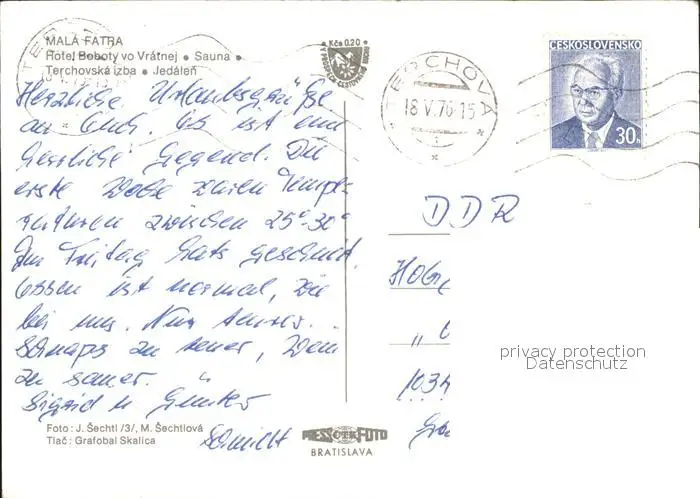 MALÁ FATRA
Hotel Boboty vo Vrátnej • Sauna •
Terchovská izba • Jedáleň
Kčs 0,20
TERCHOVÁ
18.V.76-15
ČESKOSLOVENSKO
30h
Herzliche Urlaubsgrüße
an Euch. Es ist eine
herrliche Gegend. Die
erste Woche waren Tempe-
raturen zwischen 25°-30°
Am Freitag hats geschneit.
Essen ist normal, wie
bei uns. Nur
Schnaps zu teuer, Wein
zu sauer.
Sigrid u. Günter
Schmidt
DDR
"
privacy protection
Datenschutz
Foto: J. Šechtl /3/, M. Šechtlová
Tlač: Grafobal Skalica
PRESSFOTO
BRATISLAVA